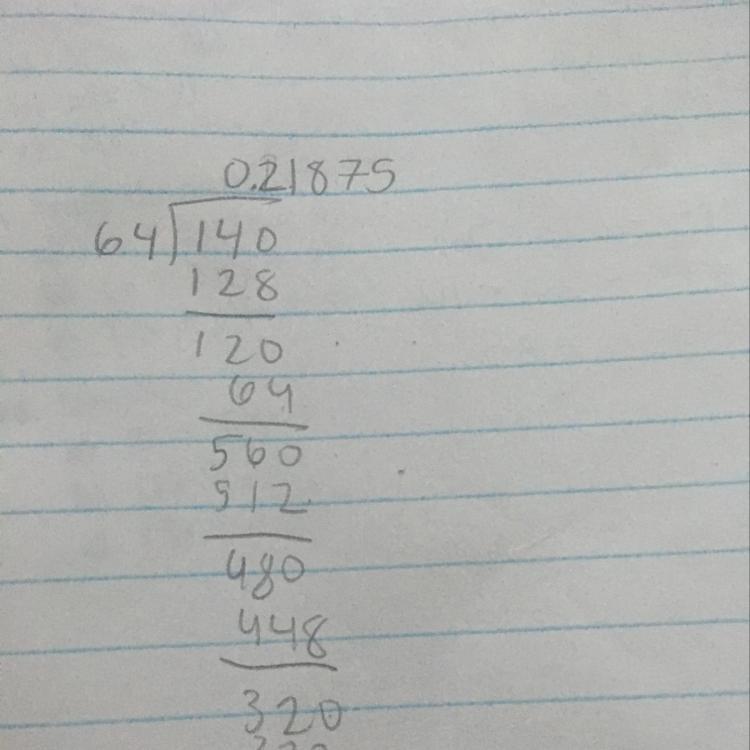 0.21875
64)140
128
120
64
560
512
480
448
320